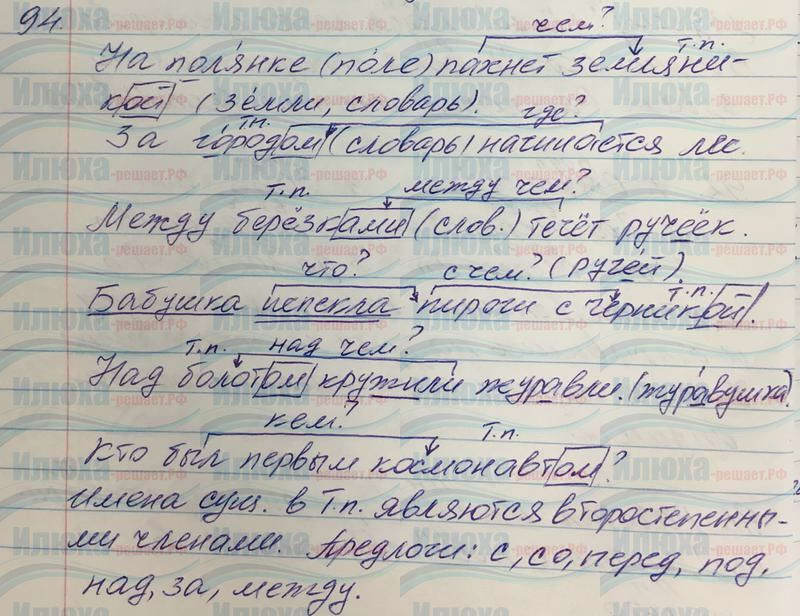 94.
чем?
т.п.
На полянке (по́ле) пахнет земляни-
кой (зе́мли, словарь). где?
т.п.
За городом (словарь) начинается лес.
т.п. между чем?
Между берёзками (слов.) течёт ручеёк.
что? с чем? (ручей)
т.п.
Бабушка испекла пироги с черникой.
т.п. над чем?
Над болотом кружили журавли. (жура́вушка).
кем? т.п.
Кто был первым космонавтом?
Имена сущ. в Т.п. являются второстепенны-
ми членами. Предлоги: с, со, перед, под,
над, за, между.
Илюха-решает.РФ